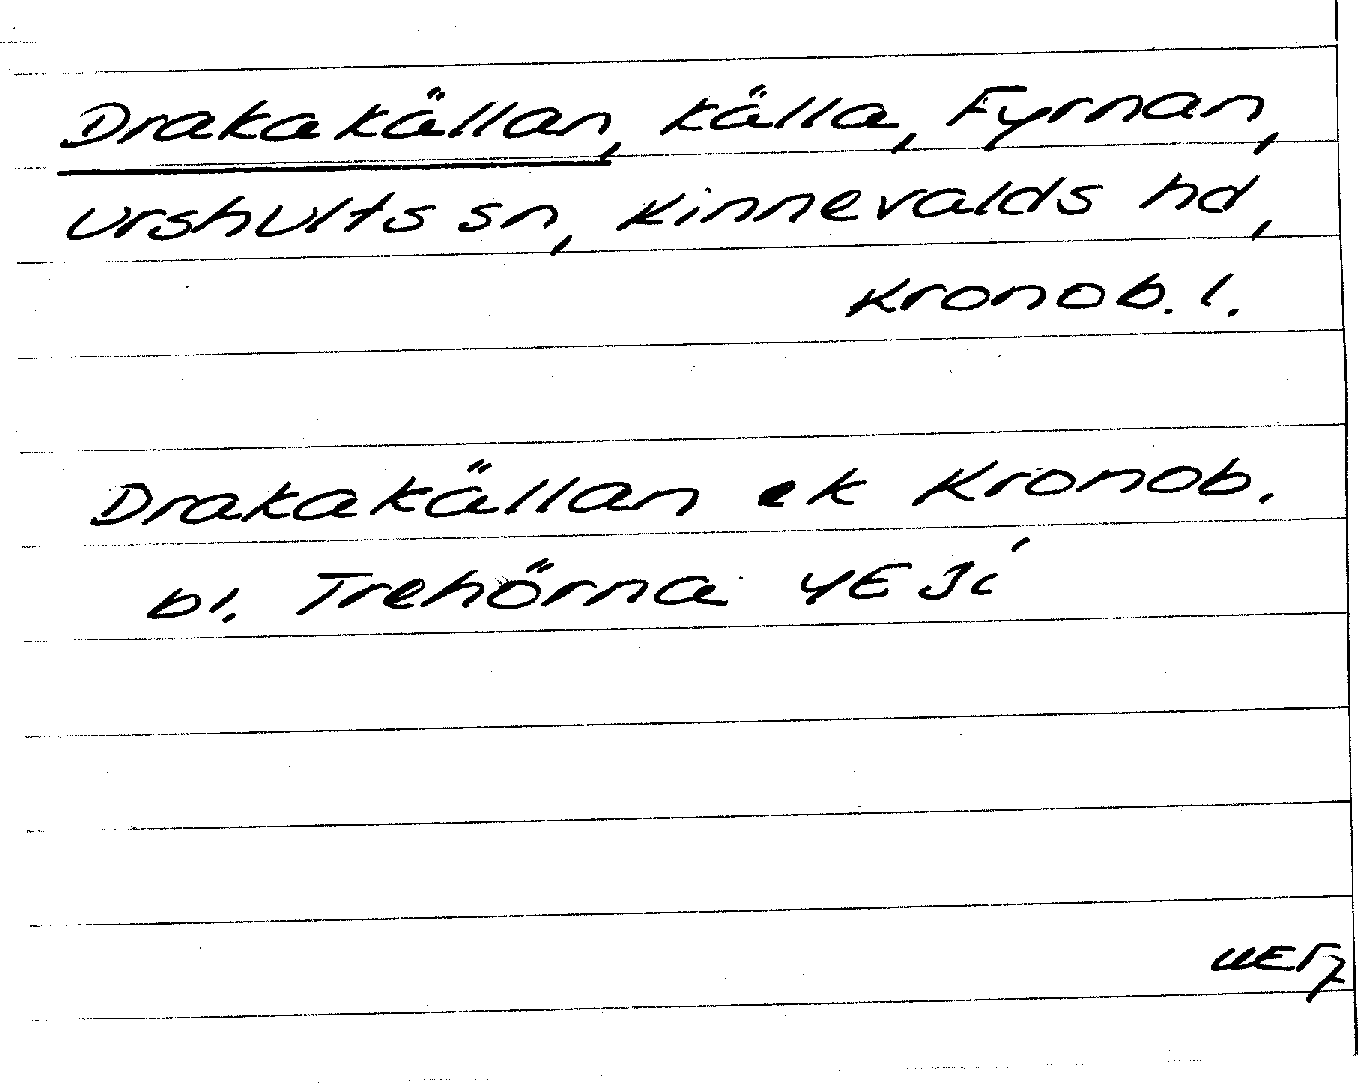 Drakakällan, källa, Fyrnan,
Urshults sn, Kinnevalds hd,
Kronob. l.
Drakakällan ek Kronob.
bl. Trehörna 4E